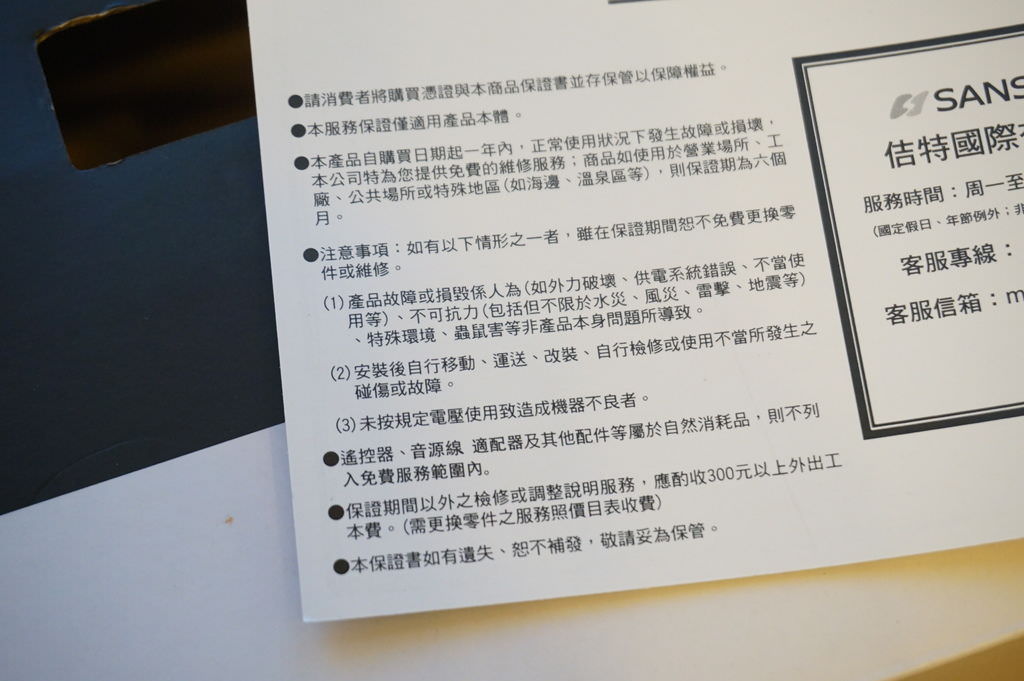 ●請消費者將購買憑證與本商品保證書並存保管以保障權益。
●本服務保證僅適用產品本體。
●本產品自購買日期起一年內，正常使用狀況下發生故障或損壞，
本公司特為您提供免費的維修服務；商品如使用於營業場所、工
廠、公共場所或特殊地區(如海邊、溫泉區等)，則保證期為六個
月。
●注意事項：如有以下情形之一者，雖在保證期間恕不免費更換零
件或維修。
(1)產品故障或損毀係人為(如外力破壞、供電系統錯誤、不當使
用等)、不可抗力(包括但不限於水災、風災、雷擊、地震等)
、特殊環境、蟲鼠害等非產品本身問題所導致。
(2)安裝後自行移動、運送、改裝、自行檢修或使用不當所發生之
碰傷或故障。
(3)未按規定電壓使用致造成機器不良者。
●遙控器、音源線 適配器及其他配件等屬於自然消耗品，則不列
入免費服務範圍內。
●保證期間以外之檢修或調整說明服務，應酌收300元以上外出工
本費。(需更換零件之服務照價目表收費)
●本保證書如有遺失、恕不補發，敬請妥為保管。
SANS
佶特國際
服務時間：周一至
(國定假日、年節例外；非
客服專線：
客服信箱：m